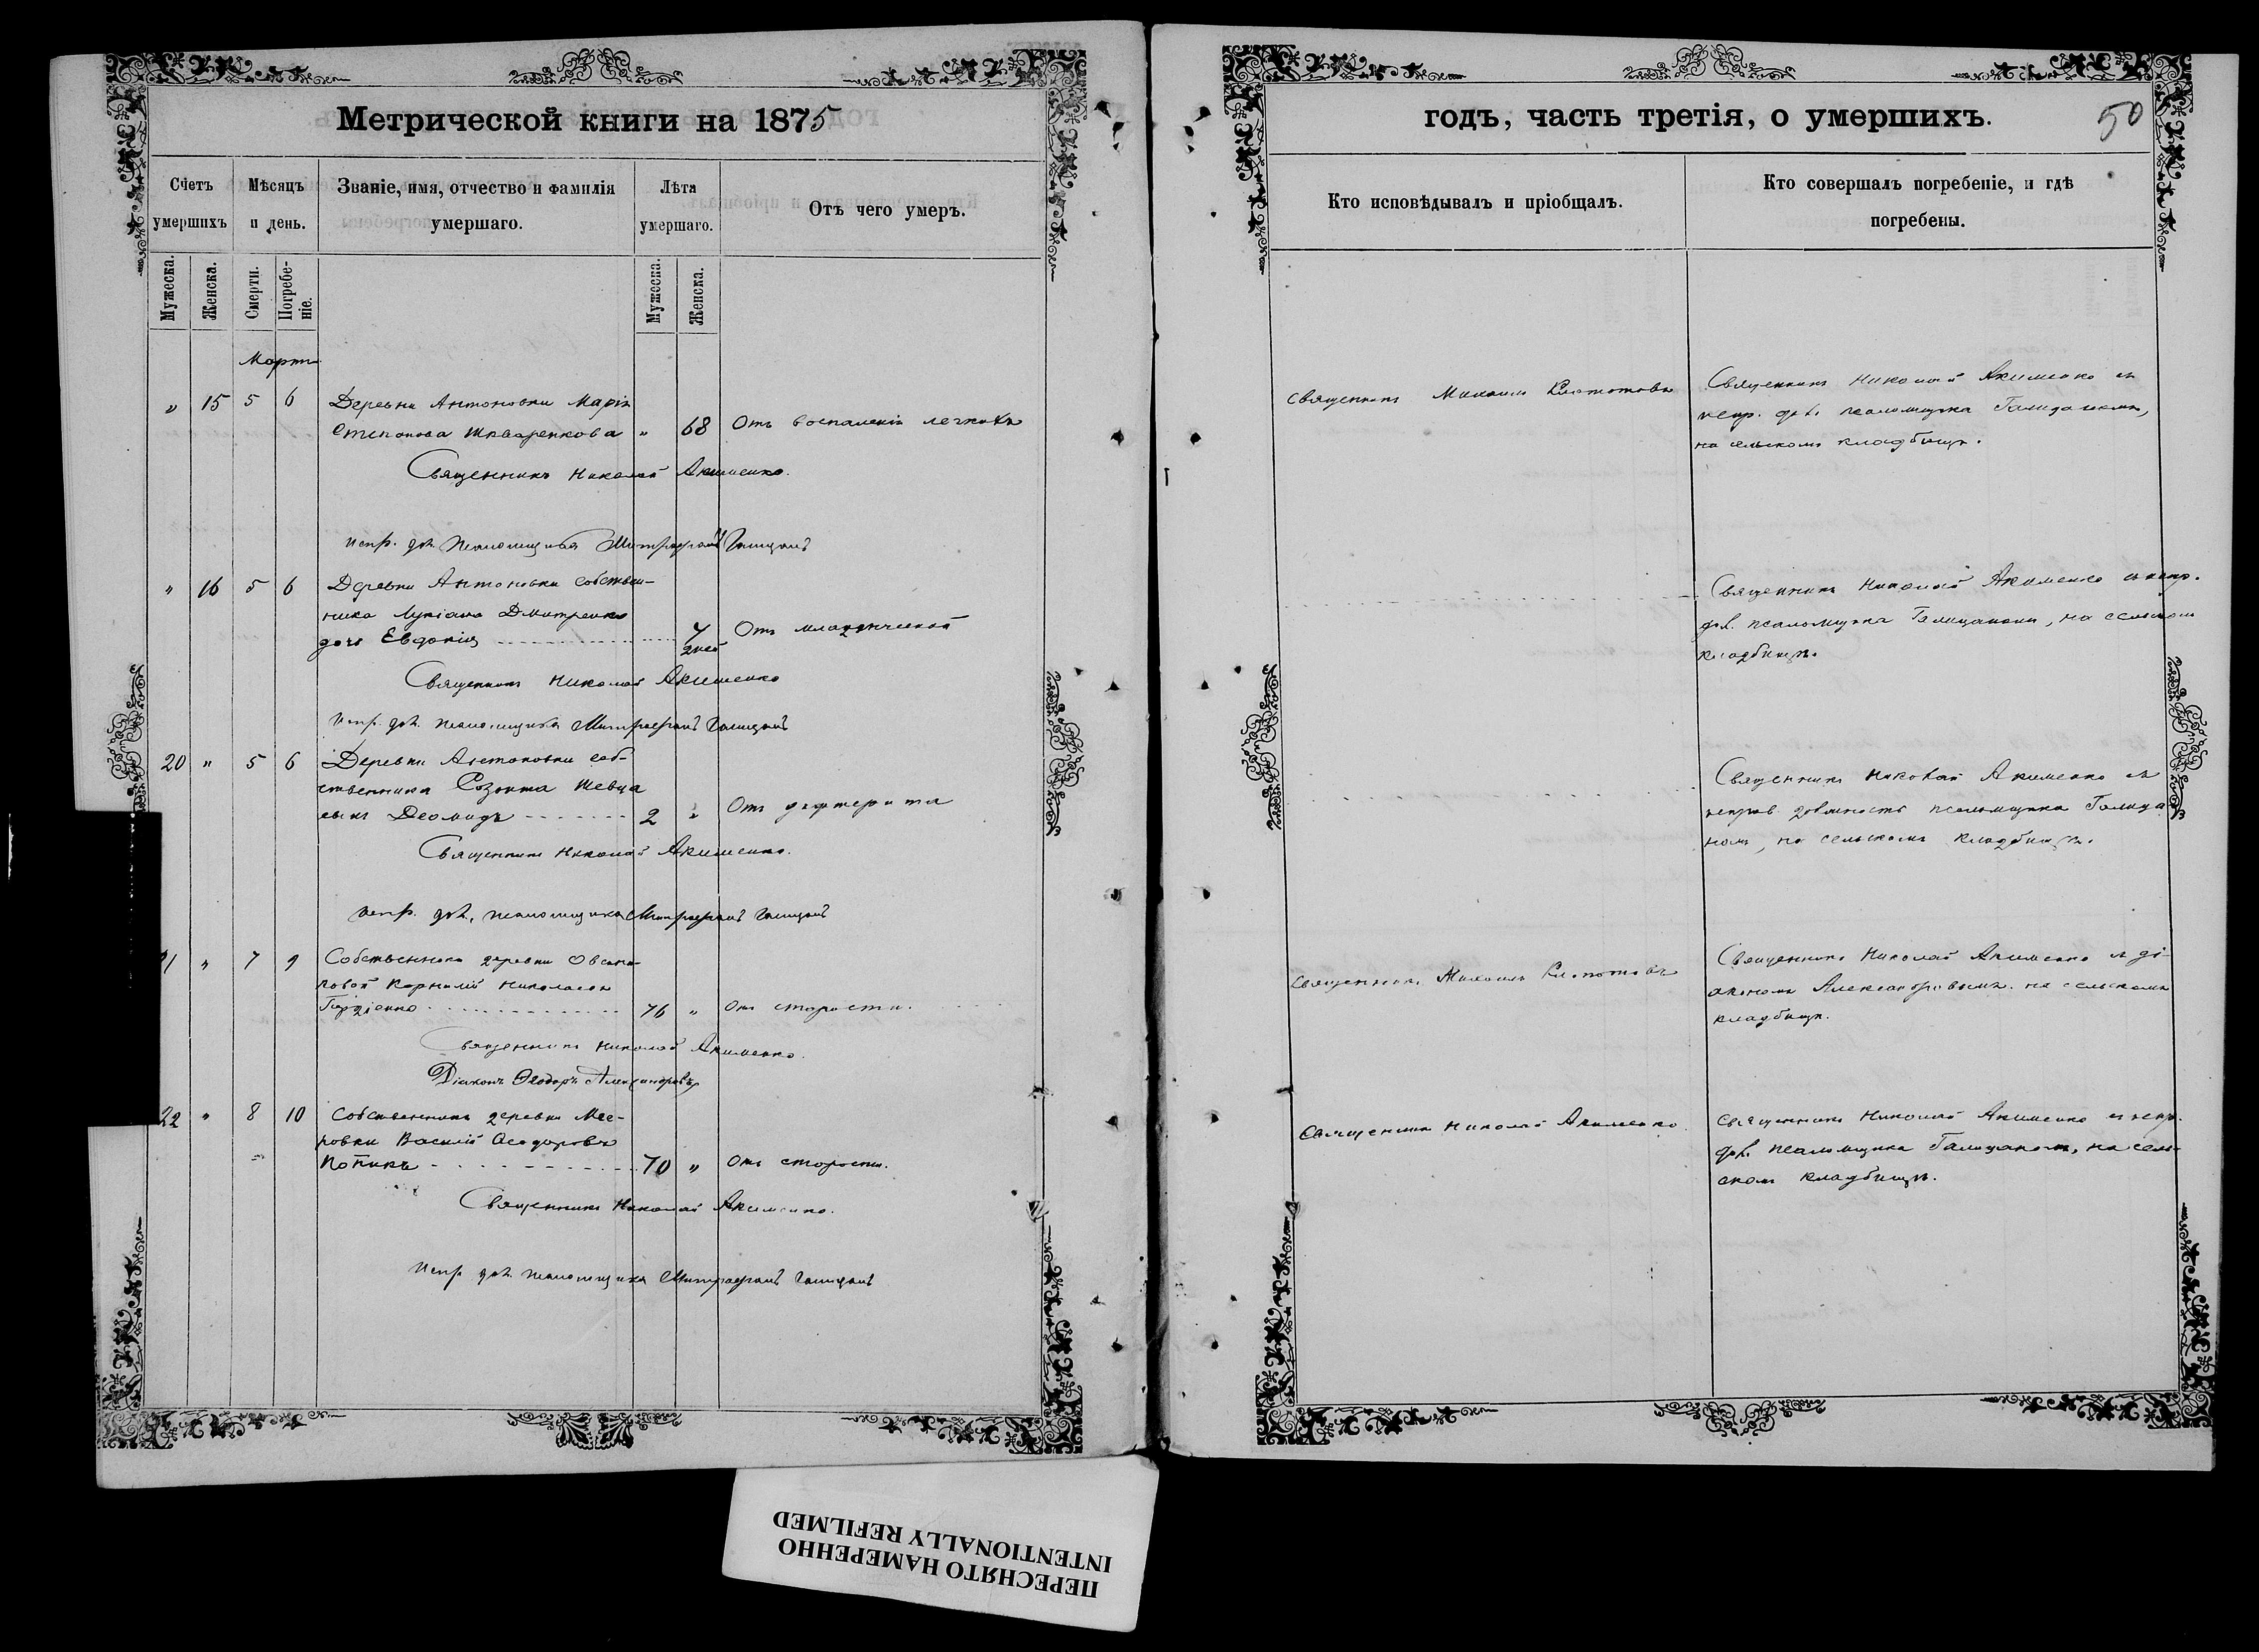 Метрической книги на 1875
Счетъ умершихъ
Мѣсяцъ и день.
Званіе, имя, отчество и фамилія умершаго.
Лѣта умершаго.
Отъ чего умеръ.
Мужеска.
Женска.
Смерти.
Погребеніе.
Мужеска.
Женска.
Мартъ
„ 15 5 6 Деревни Антоновки Марія
Степанова Шкваренкова „ 68 Отъ воспаленія легкихъ
Священникъ Николай Акименко.
Испр. дол. псаломщика Митрофанъ Галицанъ
„ 16 5 6 Деревни Антоновки собствен-
ника Лукіана Дмитренко
дочь Евдокія 7 дней Отъ младенческой
Священникъ Николай Акименко
Испр. дол. псаломщика Митрофанъ Галицанъ
20 „ 5 6 Деревни Антоновки соб-
ственника Созонта Шевца
сынъ Деомидъ 2 „ Отъ дифтерита
Священникъ Николай Акименко.
Испр. дол. псаломщика Митрофанъ Галицанъ
1 „ 7 9 Собственникъ деревни
Корнилій Николаевъ
Гордіенко 76 „ Отъ старости.
Священникъ Николай Акименко.
Діаконъ Ѳеодоръ Александровъ
22 „ 8 10 Собственникъ деревни Мее-
ровки Василій Ѳеодоровъ
70 „ Отъ старости.
Священникъ Николай Акименко.
Испр. дол. псаломщика Митрофанъ Галицанъ
годъ, часть третія, о умершихъ.
50
Кто исповѣдывалъ и пріобщалъ.
Кто совершалъ погребеніе, и гдѣ погребены.
Священникъ Михаилъ
Священникъ Николай Акименко съ
испр. дол. псаломщика Галицаномъ,
на сельскомъ кладбищѣ.
Священникъ Николай Акименко съ испр.
дол. псаломщика Галицаномъ, на сельскомъ
кладбищѣ.
Священникъ Николай Акименко съ
исправ. должность псаломщика Галица
номъ, на сельскомъ кладбищѣ.
Священникъ Михаилъ
Священникъ Николай Акименко съ ді-
акономъ Александровымъ на сельскомъ
кладбищѣ.
Священникъ Николай Акименко.
Священникъ Николай Акименко съ испр.
дол. псаломщика Галицаномъ, на сель-
скомъ кладбищѣ.
ПЕРЕСНЯТО НАМЕРЕННО
INTENTIONALLY REFILMED